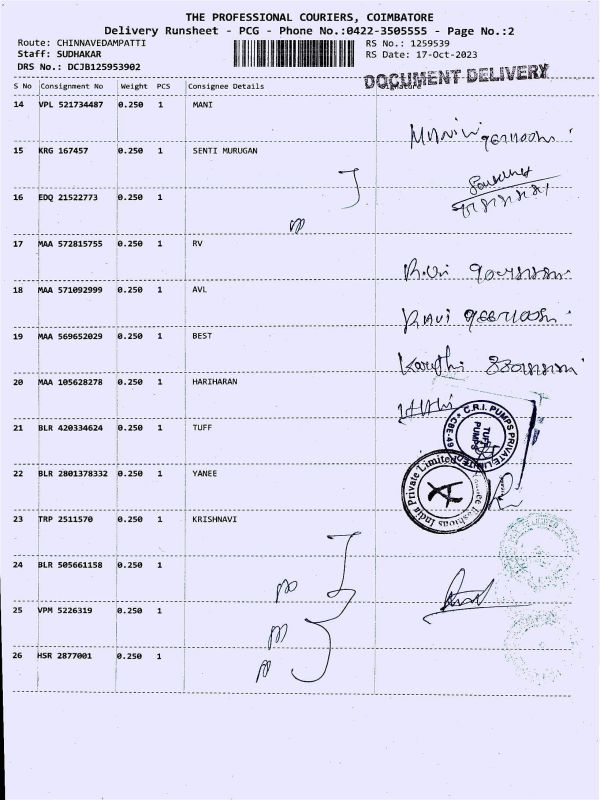 THE PROFESSIONAL COURIERS, COIMBATORE
Delivery Runsheet - PCG - Phone No.:0422-3505555 - Page No.:2
Route: CHINNAVEDAMPATTI RS No.: 1259539
Staff: SUDHAKAR RS Date: 17-Oct-2023
DRS No.: DCJB125953902
DOCUMENT DELIVERY
S No Consignment No Weight PCS Consignee Details Signature
14 VPL 521734487 0.250 1 MANI
15 KRG 167457 0.250 1 SENTI MURUGAN
16 EDQ 21522773 0.250 1
17 MAA 572815755 0.250 1 RV
18 MAA 571092999 0.250 1 AVL
Ravi
19 MAA 569652029 0.250 1 BEST
20 MAA 105628278 0.250 1 HARIHARAN
21 BLR 420334624 0.250 1 TUFF
C.R.I. PUMPS PRIVATE LIMITED
CBE-49
TUFF
PUMPS
22 BLR 2801378332 0.250 1 YANEE
Yanee Fashions India Private Limited
23 TRP 2511570 0.250 1 KRISHNAVI
24 BLR 505661158 0.250 1
25 VPM 5226319 0.250 1
26 HSR 2877001 0.250 1